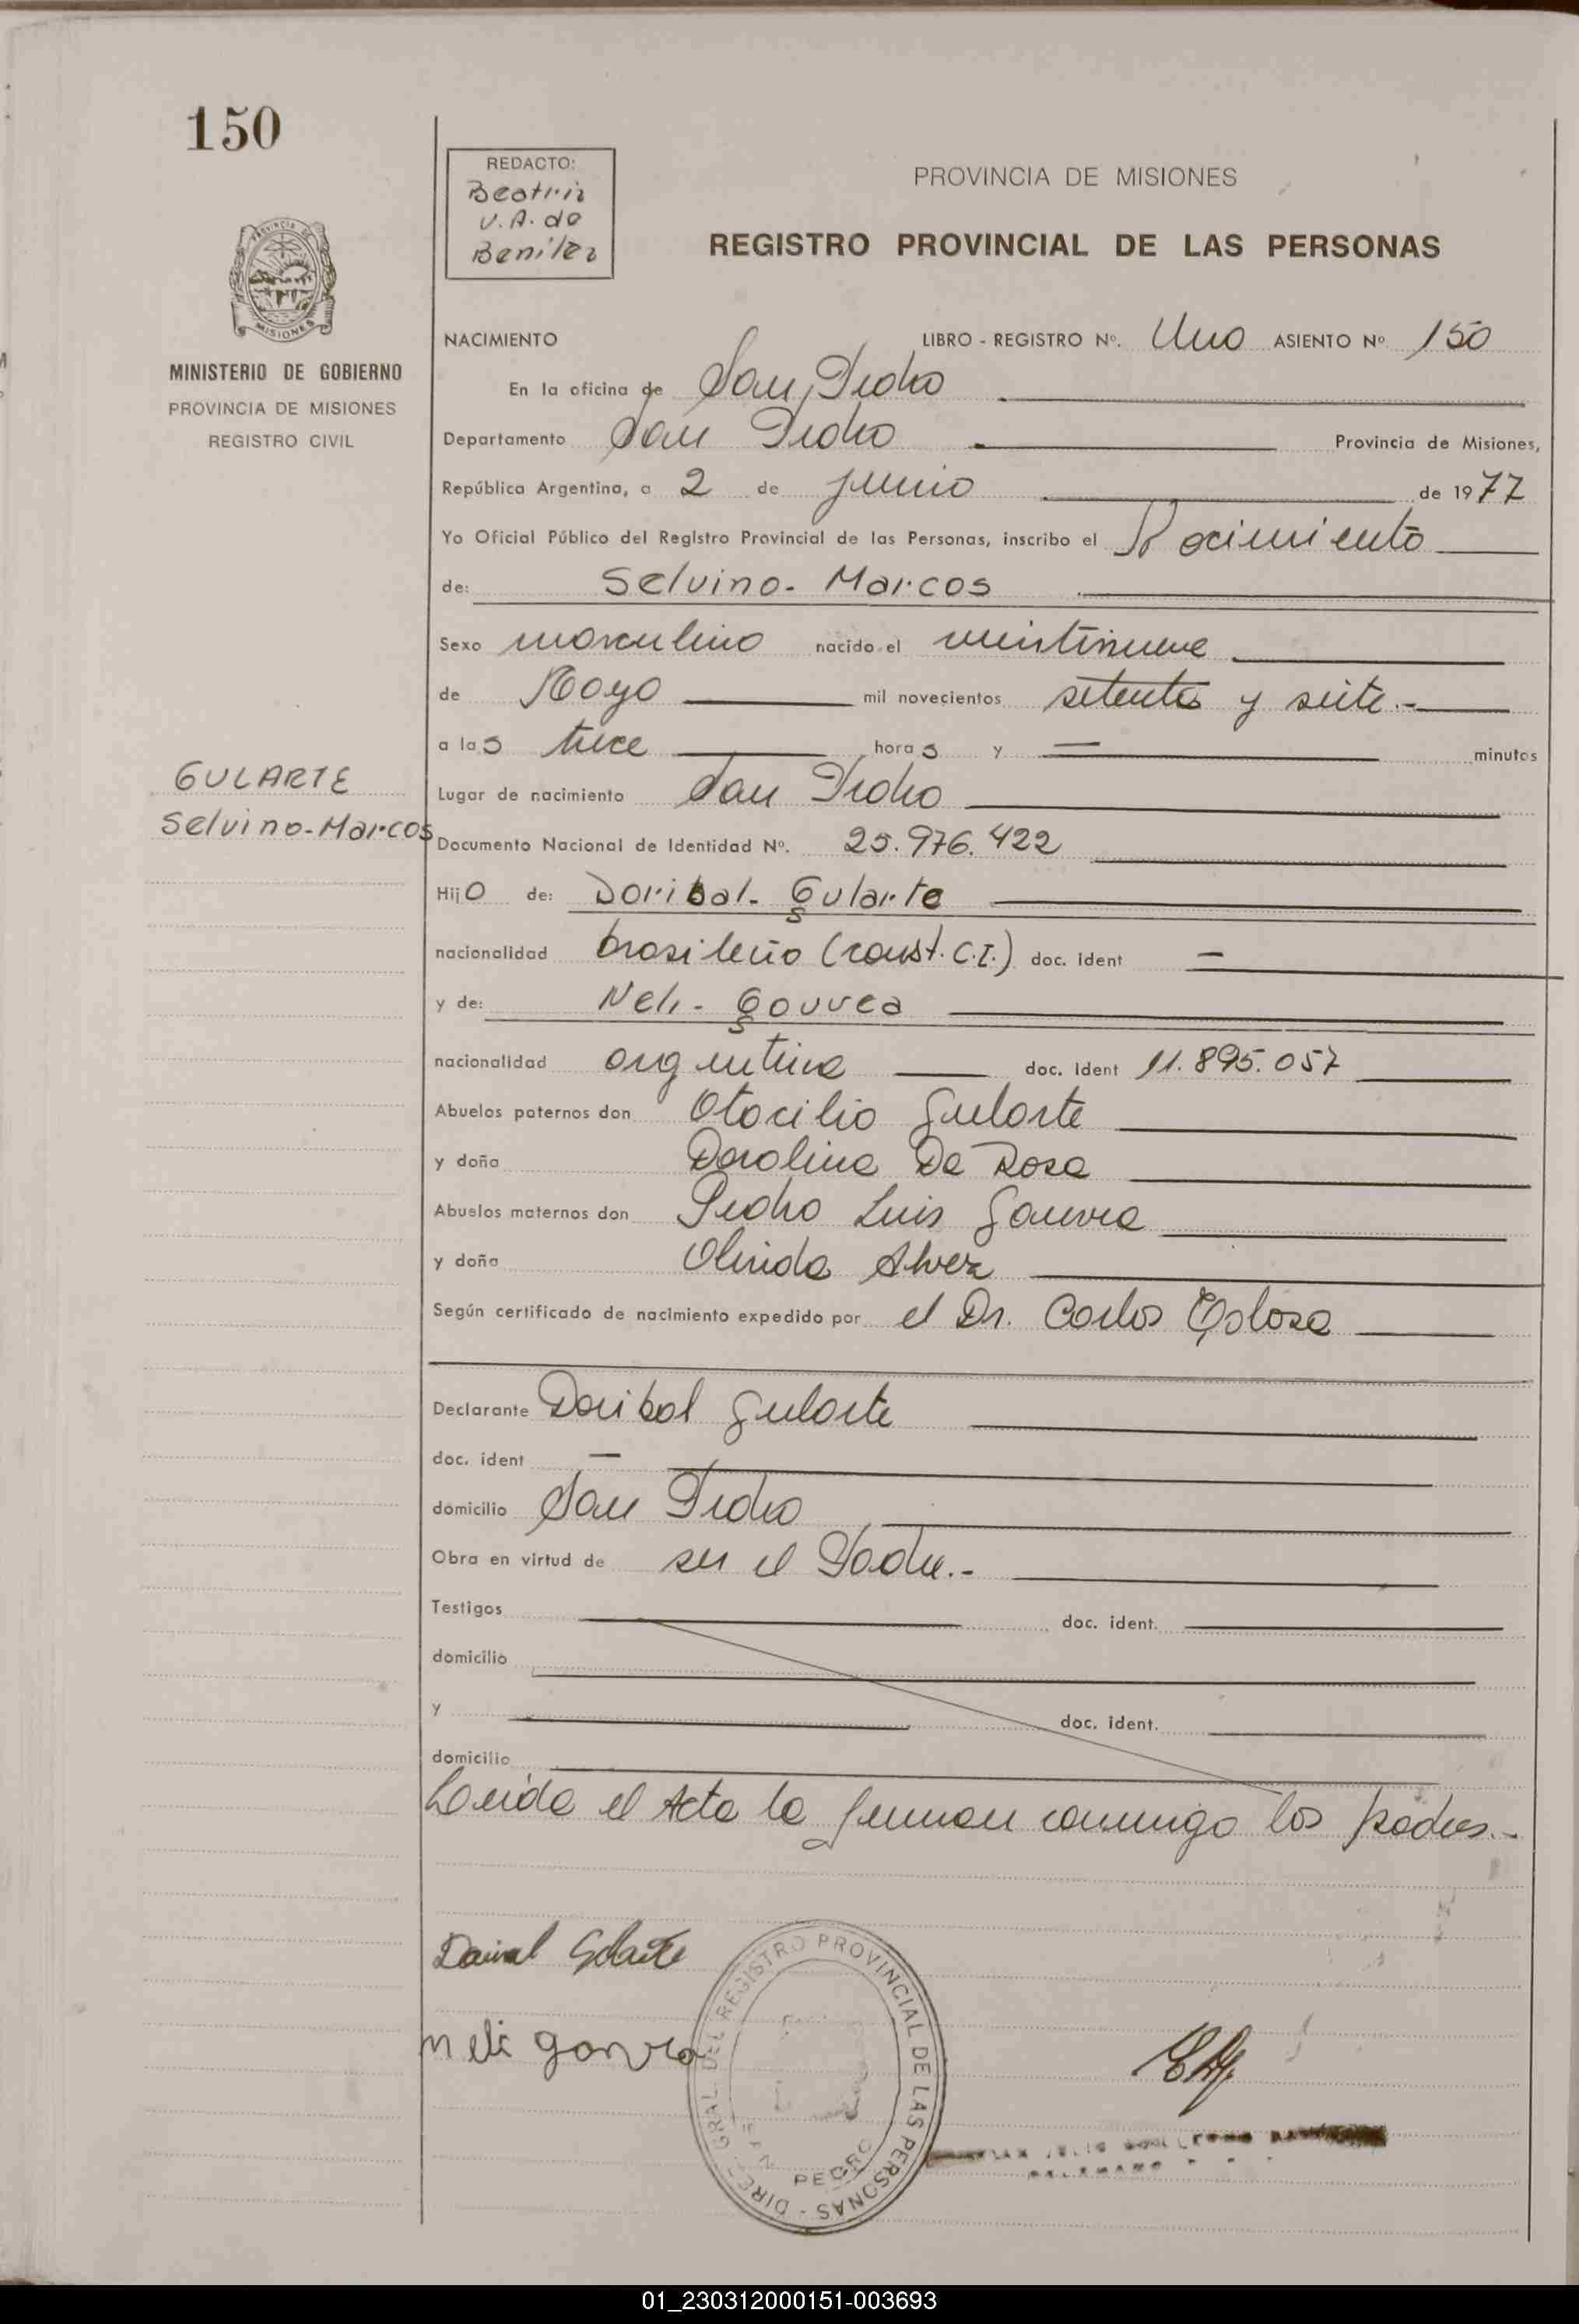 150
REDACTO:
Beatriz
V.A. de
Benitez
PROVINCIA DE MISIONES
REGISTRO PROVINCIAL DE LAS PERSONAS
MINISTERIO DE GOBIERNO
PROVINCIA DE MISIONES
REGISTRO CIVIL
NACIMIENTO LIBRO - REGISTRO Nº. Uno ASIENTO Nº 150
En la oficina de San Pedro
Departamento San Pedro Provincia de Misiones,
República Argentina, a 2 de junio de 1977
Yo Oficial Público del Registro Provincial de las Personas, inscribo el Nacimiento
de: Selvino - Marcos
Sexo masculino nacido el veintinueve
de Mayo mil novecientos setenta y siete.-
a las trece horas y — minutos
GULARTE
Selvino-Marcos
Lugar de nacimiento San Pedro
Documento Nacional de Identidad Nº. 25.976.422
Hijo de: Doribal - Gularte
nacionalidad brasileño (const. C.I.) doc. ident —
y de: Neli - Gouvea
nacionalidad argentina doc. ident 11.895.057
Abuelos paternos don Otacilio Gularte
y doña Dorolina Da Rosa
Abuelos maternos don Pedro Luis Gouvea
y doña Olinda Alvez
Según certificado de nacimiento expedido por el Dr. Carlos
Declarante Doribal Gularte
doc. ident —
domicilio San Pedro
Obra en virtud de ser el Padre.-
Testigos doc. ident.
domicilio
y doc. ident.
domicilio
Leida el Acta la firman conmigo los padres.-
Gularte
Neli Gouvea
DIREC. GRAL. DEL REGISTRO PROVINCIAL DE LAS PERSONAS -
SAN PEDRO
01_230312000151-003693